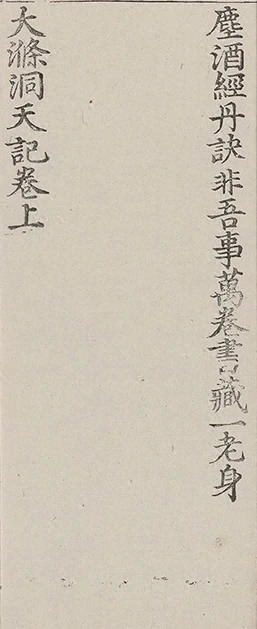 塵酒經丹訣非吾事萬卷書藏一老身
大滌洞天記卷上